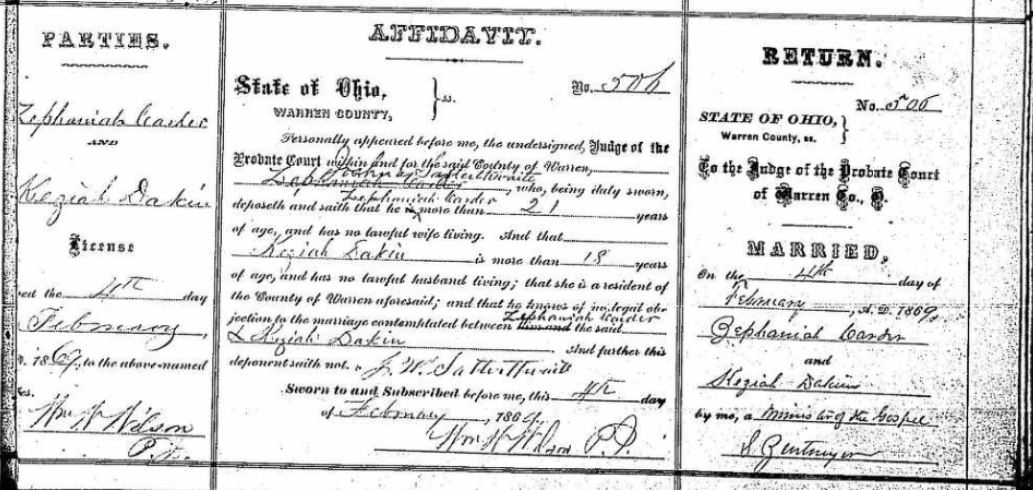 PARTIES.
Zephaniah Carder
AND
Keziah Dakin
License
ed the 4th day
February,
1869, to the above-named
es.
Wm W Wilson
P. J.
AFFIDAVIT.
State of Ohio, } ss. No. 506
WARREN COUNTY,
Personally appeared before me, the undersigned, Judge of the
Probate Court within and for the said County of Warren,
Satterthwaite
Zephaniah Carder, who, being duly sworn,
Zephaniah Carder
deposeth and saith that he is more than 21 years
of age, and has no lawful wife living. And that
Keziah Dakin is more than 18 years
of age, and has no lawful husband living; that she is a resident of
the County of Warren aforesaid; and that he knows of no legal ob-
Zephaniah Carder
jection to the marriage contemplated between him and the said
& Keziah Dakin And further this
deponent saith not. J. W. Satterthwaite
Sworn to and Subscribed before me, this 4th day
of February, 1869.
Wm W Wilson P. J.
RETURN.
No. 506
STATE OF OHIO, }
Warren County, ss.
To the Judge of the Probate Court
of Warren Co., O.
MARRIED,
On the 4th day of
February, A. D. 1869,
Zephaniah Carder
and
Keziah Dakin
by me, a Minister of the Gospel
S. Zentmyer